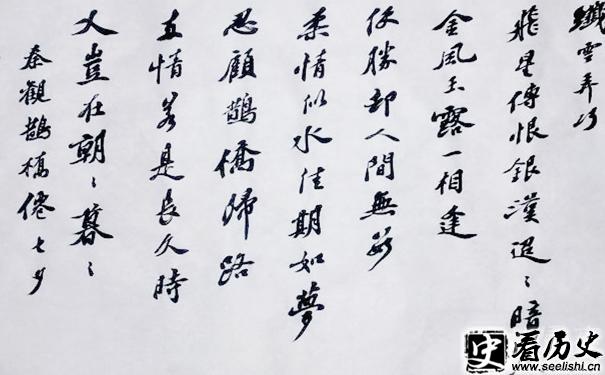 纖雲弄巧
飛星傳恨銀漢迢〻暗
金風玉露一相逢
便勝却人間無數
柔情似水佳期如夢
忍顧鵲橋歸路
两情若是長久時
又豈在朝〻暮〻
秦觀鵲橋僊七夕
史看历史
www.seelishi.cn